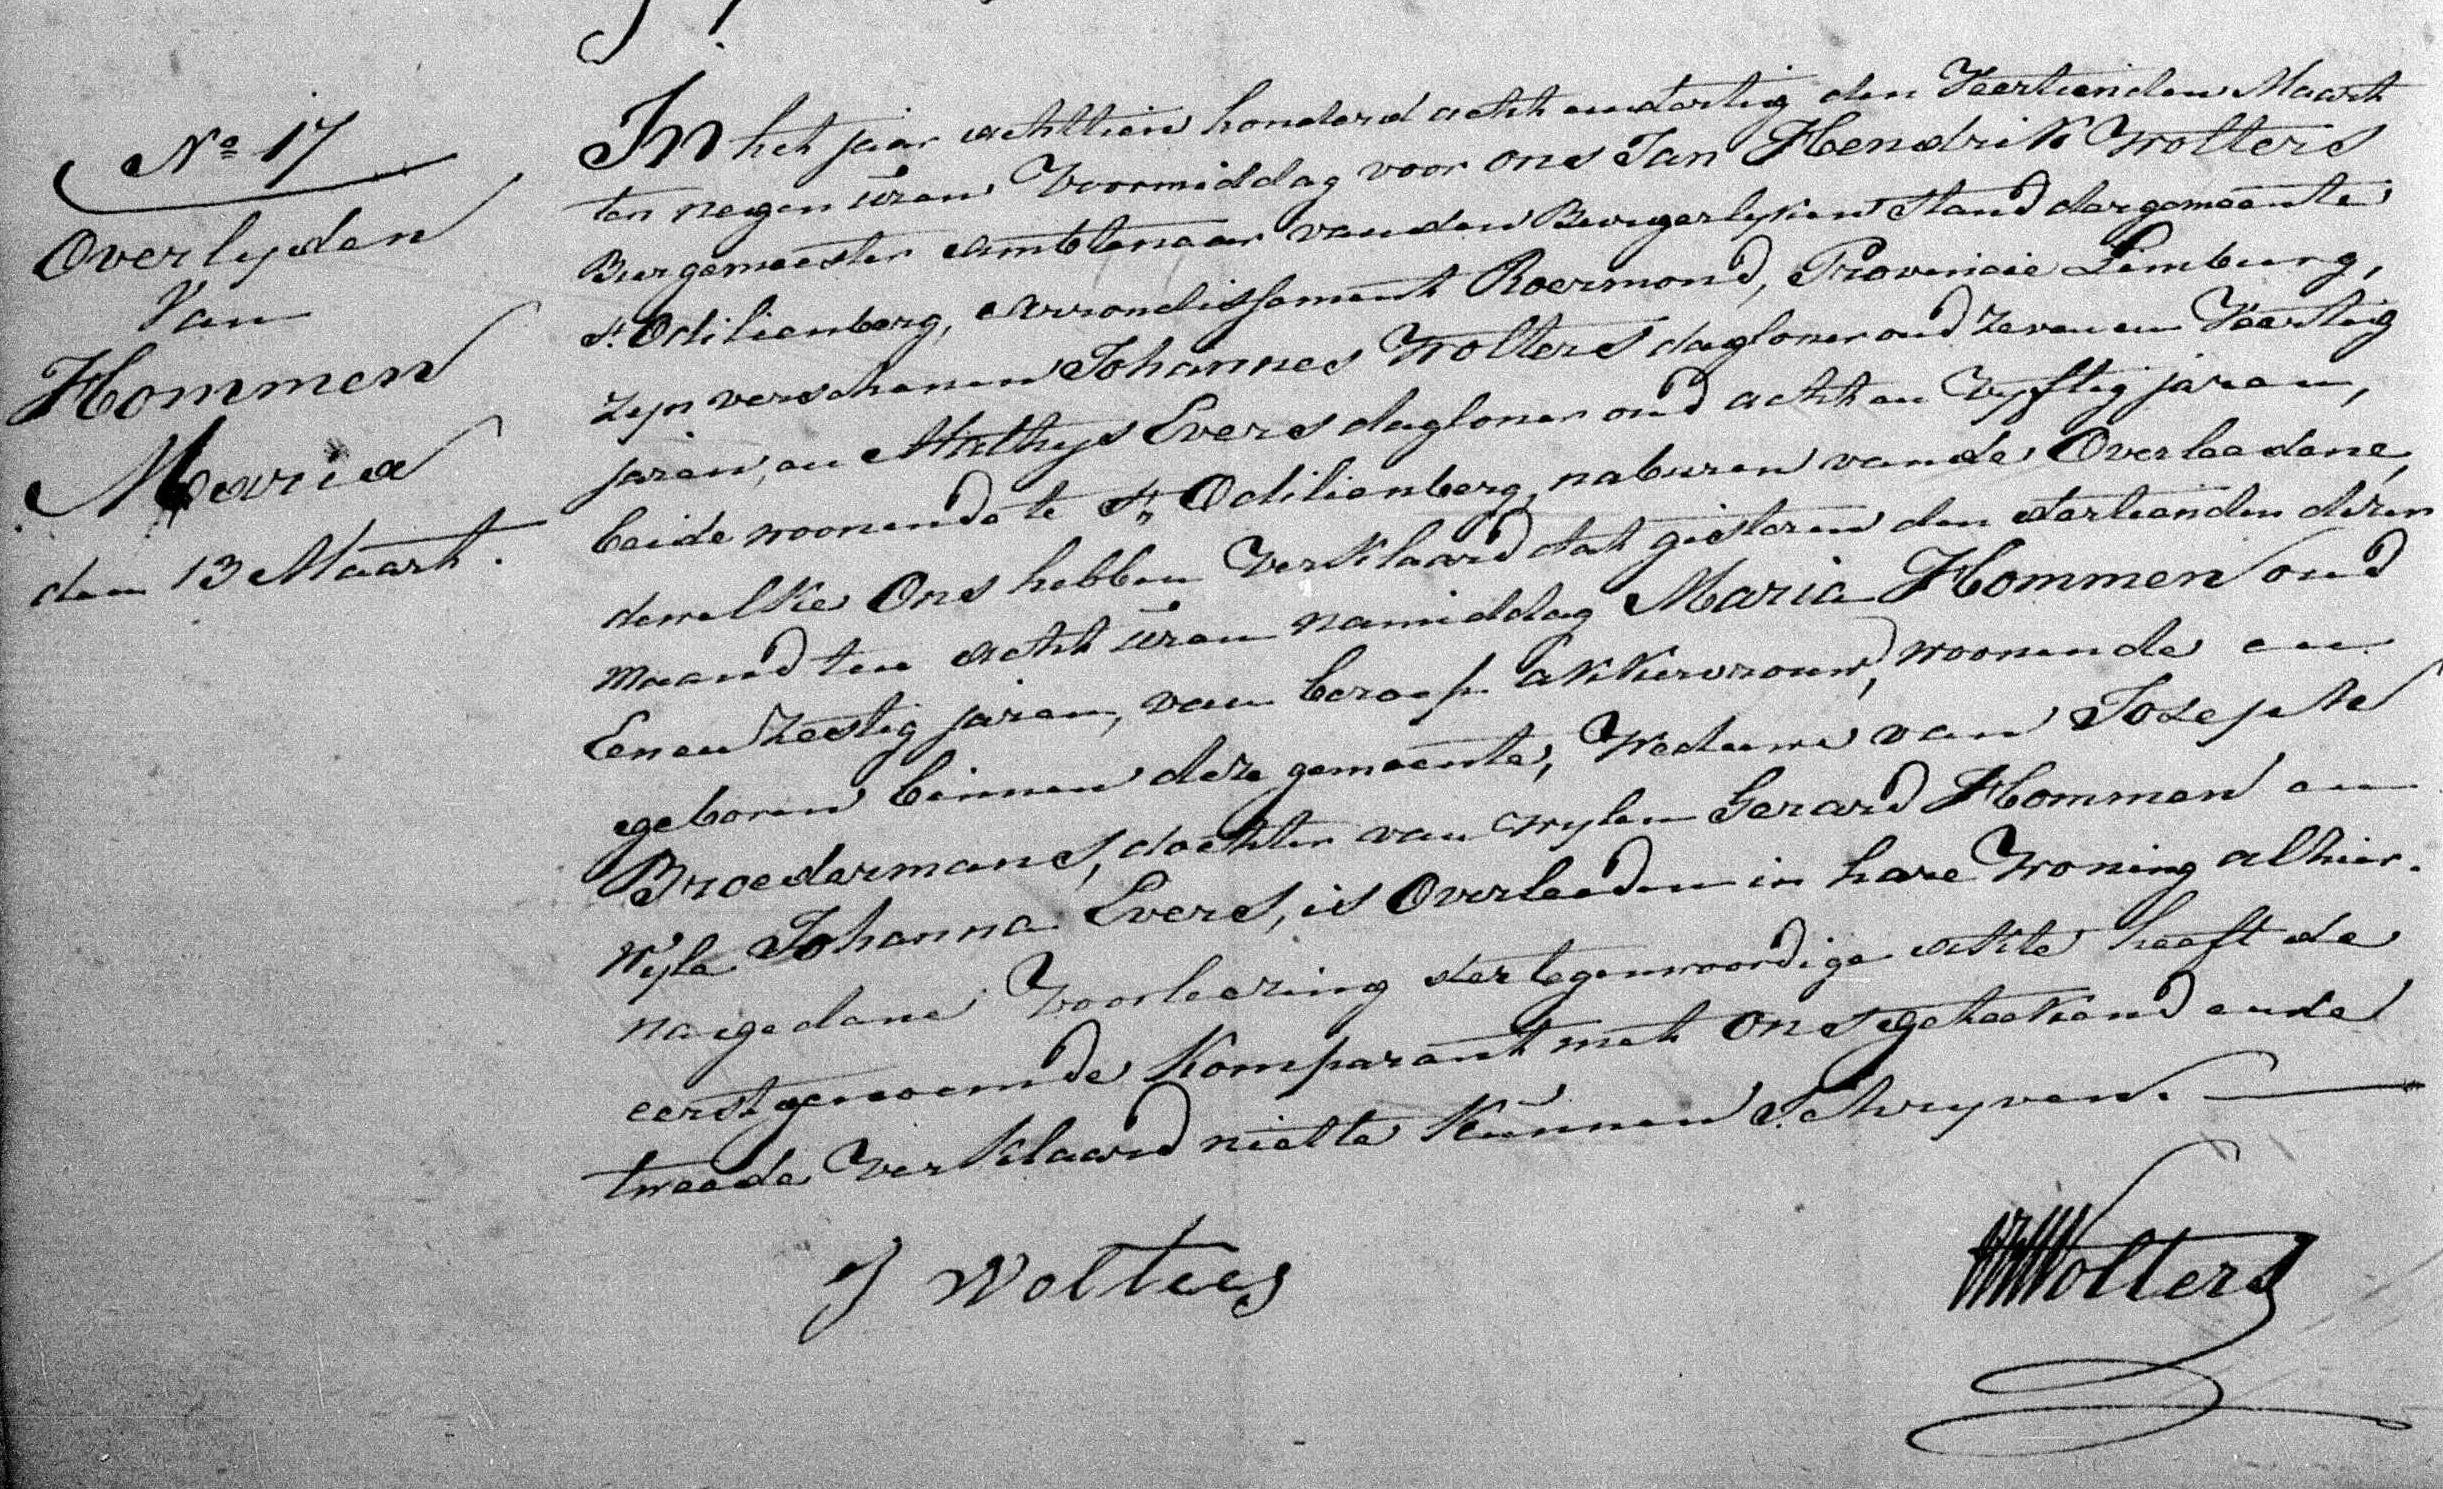 Nº 17
Overlyden
Van
Hommen
Maria
den 13 Maart.
In het jaar achttien honderd acht en dertig den Veertienden Maart
ten negen uren Voormiddag voor ons Jan Hendrik Wolters
Burgemeester Ambtenaar van den Burgerlyken Stand der gemeente
St. Odilienberg, Arrondissement Roermond, Provincie Limburg,
zyn verschenen Johannes Wolters dagloner oud zeven en Veertig
jaren, en Mathys Evers dagloner oud acht en Vyftig jaren,
beide woonende te St. Odilienberg, naburen van de Overleedene,
dewelke Ons hebben Verklaard dat gisteren den dertienden dezer
maand ten acht uren namiddag Maria Hommen oud
Een en Zestig jaren, van beroep akkervrouw, woonende en
geboren binnen deze gemeente, Weduwe van Joseph
Broedermans, dochter van wylen Gerard Hommen en
Wyle Johanna Evers, is Overleeden in hare Woning alhier.
na gedane Voorleezing der tegenwoordige akte heeft de
eerstgenoemde Komparant met ons geteekend en de
tweede Verklaard niet te Kunnen Schryven.
J Wolters
Wolters